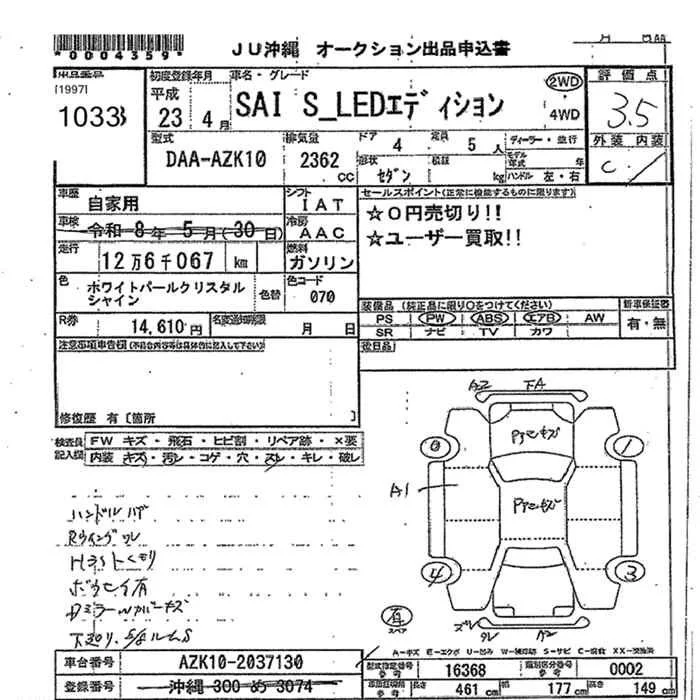 *0004359*
JU沖縄 オークション出品申込書
[1997]
1033
初度登録年月
平成
23 4月
車名・グレード
SAI S_LEDエディション
2WD
4WD
評価点
3.5
外装 内装
C
型式
DAA-AZK10
排気量
2362
CC
ドア
4
定員
5人
ディーラー・並行
モデル年式 年
形状
セダン
積載
kg
ハンドル 左・右
車歴
自家用
シフト
IAT
車検
令和 8年 5月(30日)
冷房
AAC
走行
12万6千067 km
燃料
ガソリン
色
ホワイトパールクリスタル
シャイン
色替
色コード
070
R券
14,610円
名変通知期限
月 日
セールスポイント(正常に機能するものに限ります)
☆0円売切り!!
☆ユーザー買取!!
装備品 (純正品に限り○をつけてください)
PS PW ABS エアB AW
SR ナビ TV カワ
新車保証書
有・無
後日品
注意事項申告欄(不具合内容等は具体的に記入して下さい)
修復歴 有〔箇所 〕
検査員
記入欄
FW キズ・飛石・ヒビ割・リペア跡・×要
内装 キズ・汚レ・コゲ・穴・スレ・キレ・破レ
A2 FA
A1
0
1
4
3
有
スペア
A2
A-キズ E-エクボ U-凹み W-補修跡 S-サビ C-腐食 XX-交換済
車台番号
AZK10-2037130
登録番号
沖縄 300 め 3074
型式指定番号
16368
類別区分番号
0002
461 cm
幅
177 cm
高さ
149 cm